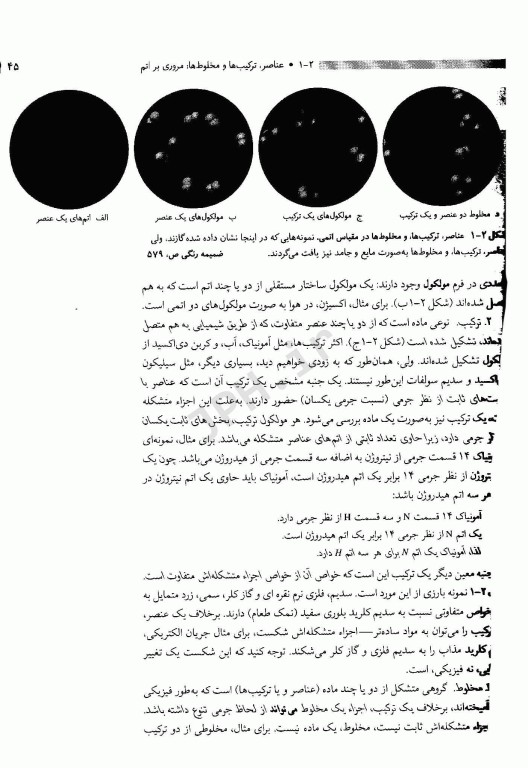 ۱-۲ • عناصر، ترکیب‌ها و مخلوط‌ها: مروری بر اتم ۴۵
د مخلوط دو عنصر و یک ترکیب
ج مولکول‌های یک ترکیب
ب مولکول‌های یک عنصر
الف اتم‌های یک عنصر
۱-۲ عناصر، ترکیب‌ها، و مخلوط‌ها در مقیاس اتمی. نمونه‌هایی که در اینجا نشان داده شده گازند، ولی
ترکیب‌ها، و مخلوط‌ها به‌صورت مایع و جامد نیز یافت می‌گردند. ضمیمه رنگی ص. ۵۷۹
در فرم مولکول وجود دارند: یک مولکول ساختار مستقلی از دو یا چند اتم است که به هم
شده‌اند (شکل ۲-۱ ب). برای مثال، اکسیژن، در هوا به صورت مولکول‌های دو اتمی است.
۲. ترکیب. نوعی ماده است که از دو یا چند عنصر متفاوت، که از طریق شیمیایی به هم متصل
تشکیل شده است (شکل ۲-۱ج). اکثر ترکیب‌ها، مثل آمونیاک، آب، و کربن دی‌اکسید از
تشکیل شده‌اند. ولی، همان‌طور که به زودی خواهیم دید، بسیاری دیگر، مثل سیلیکون
و سدیم سولفات این‌طور نیستند. یک جنبه مشخص یک ترکیب آن است که عناصر یا
ثابت از نظر جرمی (نسبت جرمی یکسان) حضور دارند. به‌علت این اجزاء متشکله
یک ترکیب نیز به‌صورت یک ماده بررسی می‌شود. هر مولکول ترکیب، بخش‌های ثابت یکسان
جرمی دارد، زیرا حاوی تعداد ثابتی از اتم‌های عناصر متشکله می‌باشد. برای مثال، نمونه‌ای
۱۴ قسمت جرمی از نیتروژن به اضافه سه قسمت جرمی از هیدروژن می‌باشد. چون یک
از نظر جرمی ۱۴ برابر یک اتم هیدروژن است، آمونیاک باید حاوی یک اتم نیتروژن در
هر سه اتم هیدروژن باشد:
آمونیاک ۱۴ قسمت N و سه قسمت H از نظر جرمی دارد.
یک اتم N از نظر جرمی ۱۴ برابر یک اتم هیدروژن است.
لذا، آمونیاک یک اتم N برای هر سه اتم H دارد.
معین دیگر یک ترکیب این است که خواص آن از خواص اجزاء متشکله‌اش متفاوت است.
۲-۱ نمونه بارزی از این مورد است. سدیم، فلزی نرم نقره ای و گاز کلر، سمی، زرد متمایل به
خواص متفاوتی نسبت به سدیم کلرید بلوری سفید (نمک طعام) دارند. برخلاف یک عنصر،
را می‌توان به مواد ساده‌تر—اجزاء متشکله‌اش شکست، برای مثال جریان الکتریکی،
کلرید مذاب را به سدیم فلزی و گاز کلر می‌شکند. توجه کنید که این شکست یک تغییر
نه فیزیکی، است.
مخلوط. گروهی متشکل از دو یا چند ماده (عناصر و یا ترکیب‌ها) است که به‌طور فیزیکی
برخلاف یک ترکیب، اجزاء یک مخلوط می‌تواند از لحاظ جرمی تنوع داشته باشد.
متشکله‌اش ثابت نیست، مخلوط، یک ماده نیست. برای مثال، مخلوطی از دو ترکیب